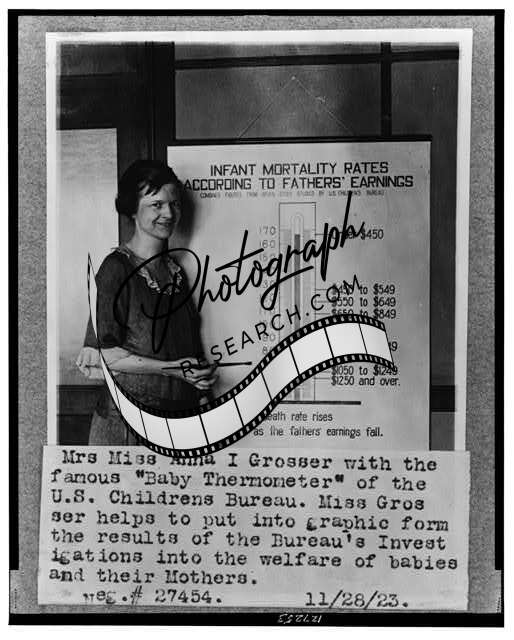 INFANT MORTALITY RATES
ACCORDING TO FATHERS' EARNINGS
170 $450
160 $450 to $549
$550 to $649
$650 to $849
$1050 to $1249
$1250 and over.
death rate rises
as the fathers' earnings fall.
Photograph
RESEARCH.COM
Mrs Miss Anna I Grosser with the
famous "Baby Thermometer" of the
U.S. Childrens Bureau. Miss Gros
ser helps to put into graphic form
the results of the Bureau's Invest
igations into the welfare of babies
and their Mothers.
Neg.# 27454. 11/28/23.
127253